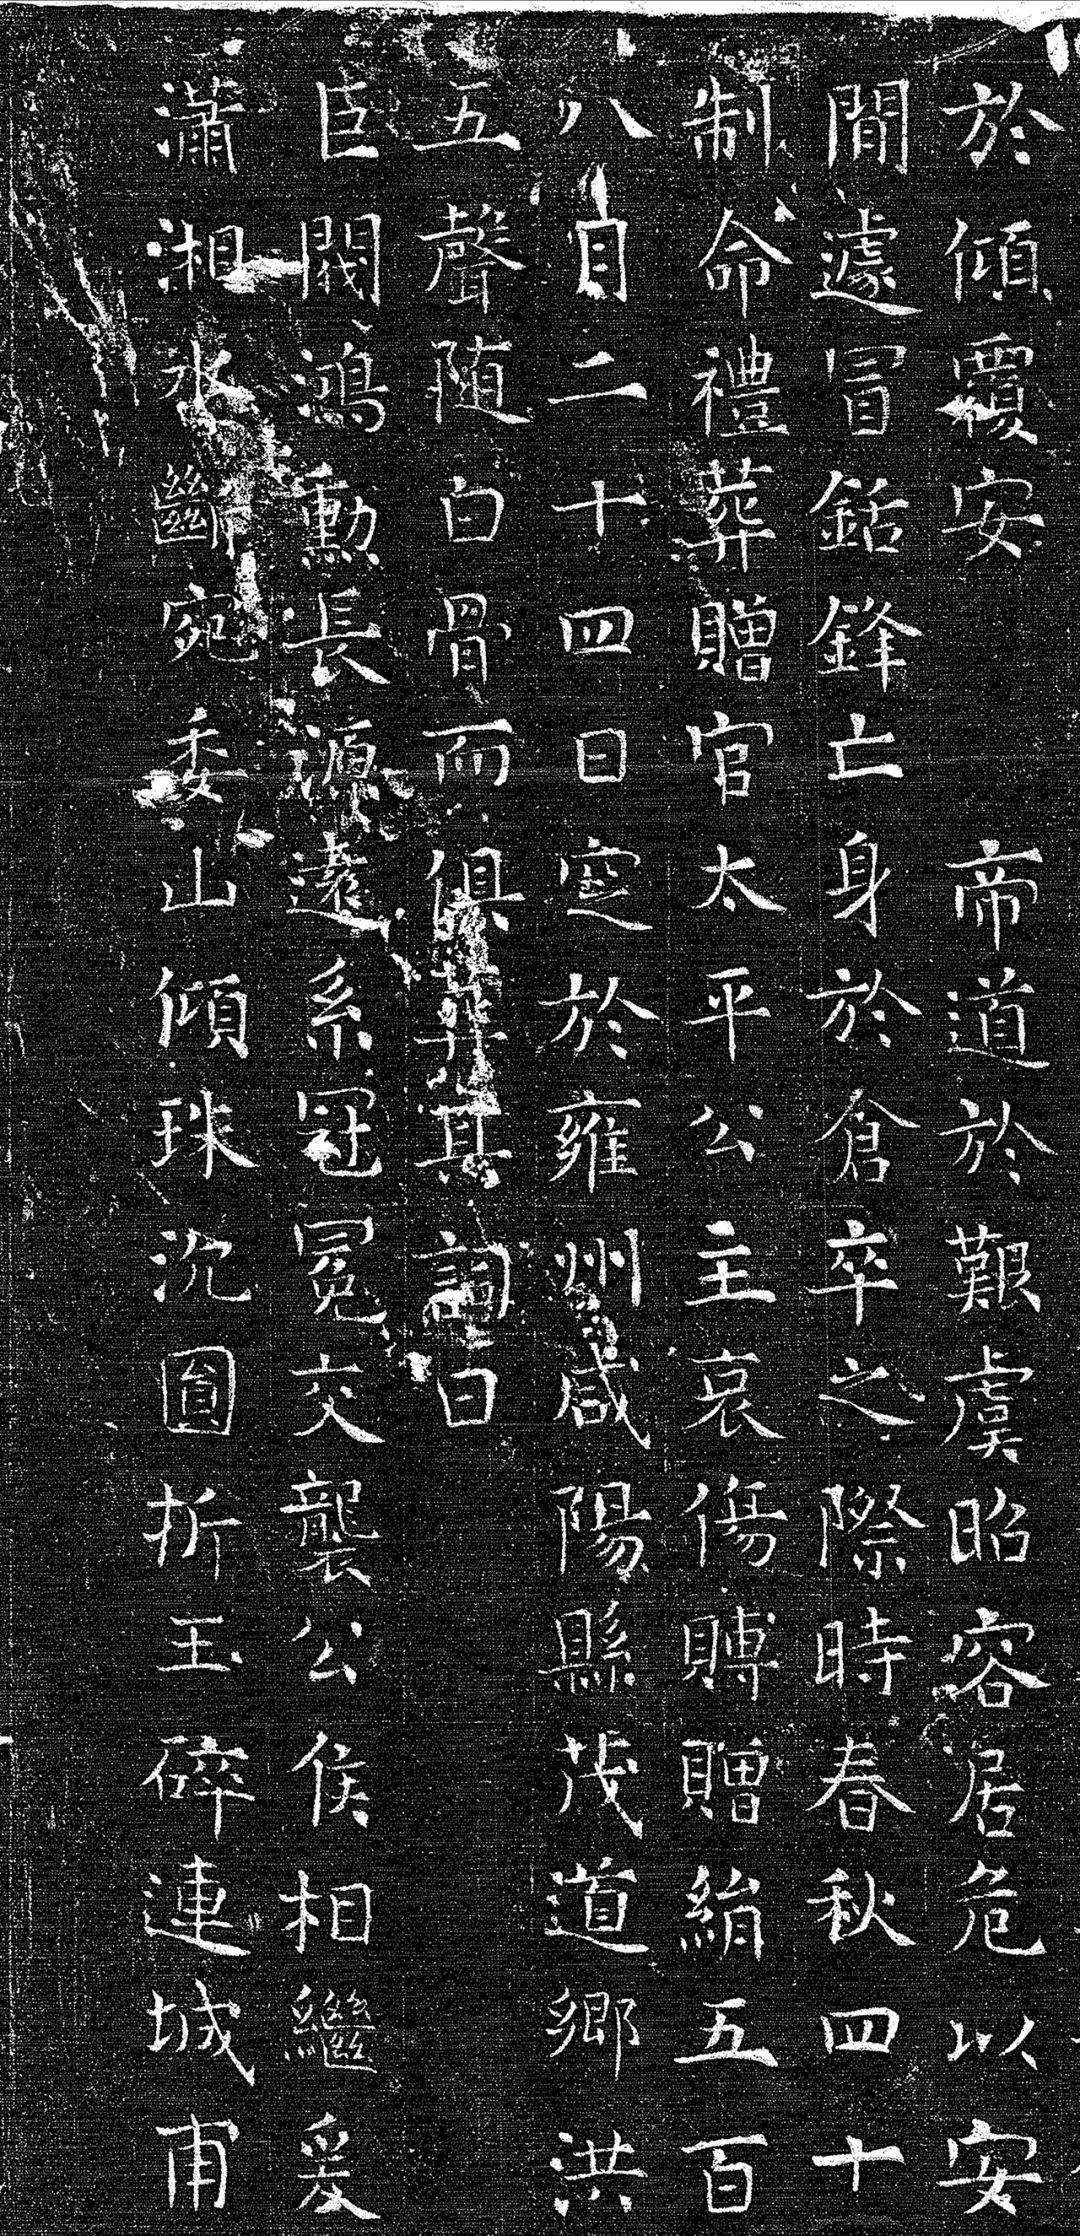 於傾覆安　帝道於艱虞昭容居危以安
閒遽冒銛鋒亡身於倉卒之際時春秋四十
制命禮葬贈官太平公主哀傷賻贈絹五百
八月二十四日窆於雍州咸陽縣茂道鄉洪
五聲随白骨而俱葬其詞曰
臣閥鴻勳長源遠系冠冕交襲公侯相繼爰
瀟湘水斷宛委山傾珠沈圓折玉碎連城甫